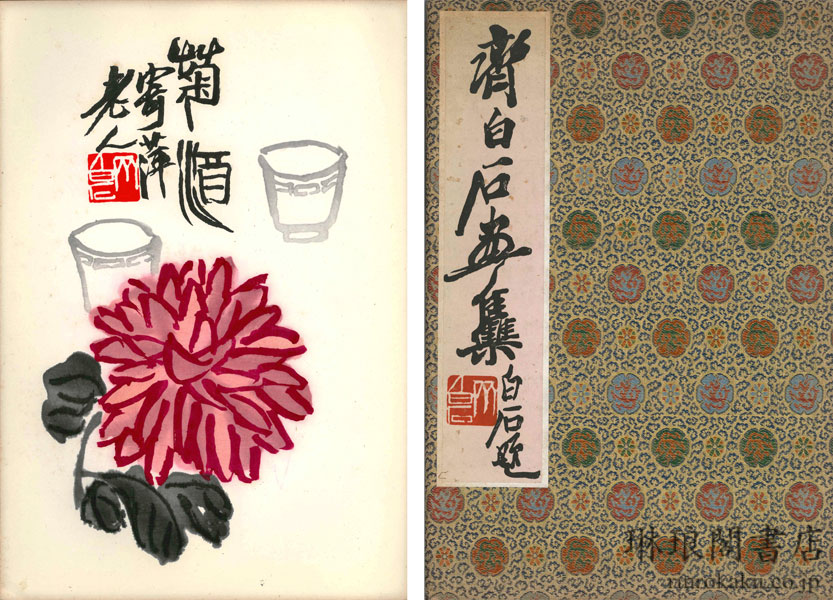 菊酒
寄萍
老人
白石
齊白石画集
白石題
白石
琳琅閣書店
rinrokaku.co.jp